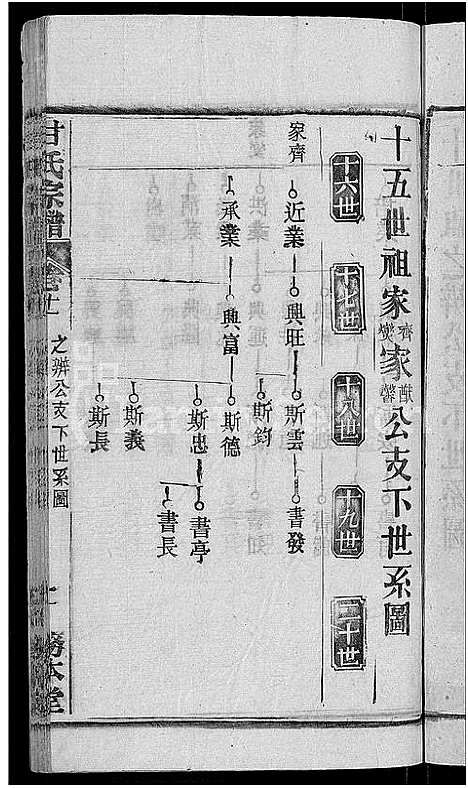 十五世祖家齊燮家猷馨公支下世系圖
十六世 十七世 十八世 十九世 二十世
家齊 近業 興旺 斯雲 書發
斯鈞
承業 興富 斯德
斯忠 書亭
書長
斯義
斯長
甘氏宗譜 卷十一 之辦公支下世系圖 務本堂